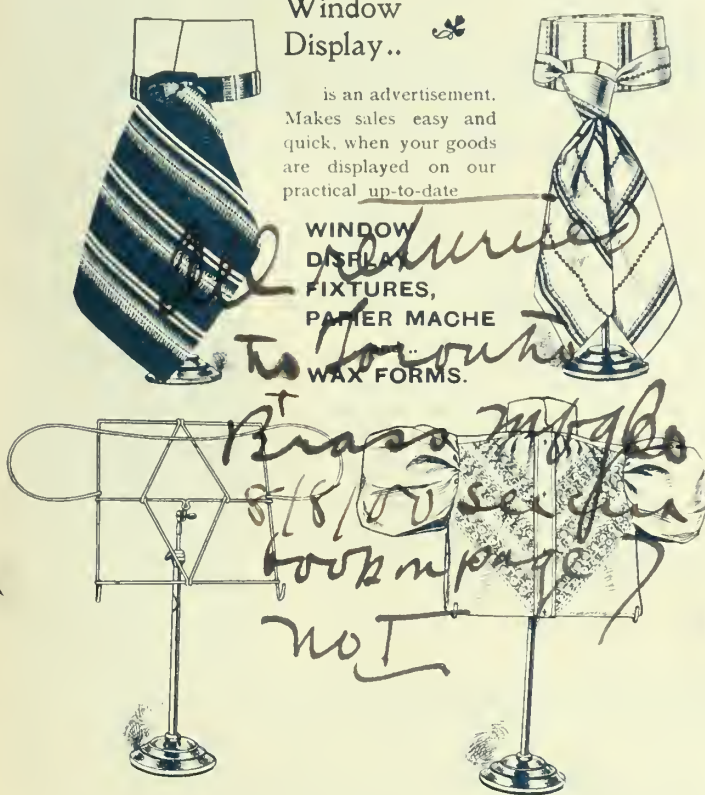 Window
Display..
is an advertisement.
Makes sales easy and
quick, when your goods
are displayed on our
practical up-to-date
WINDOW
DISPLAY
FIXTURES,
PAPIER MACHE
and..
WAX FORMS.
returned
to Toronto
Brass
8/8/00
book on page 7
No I